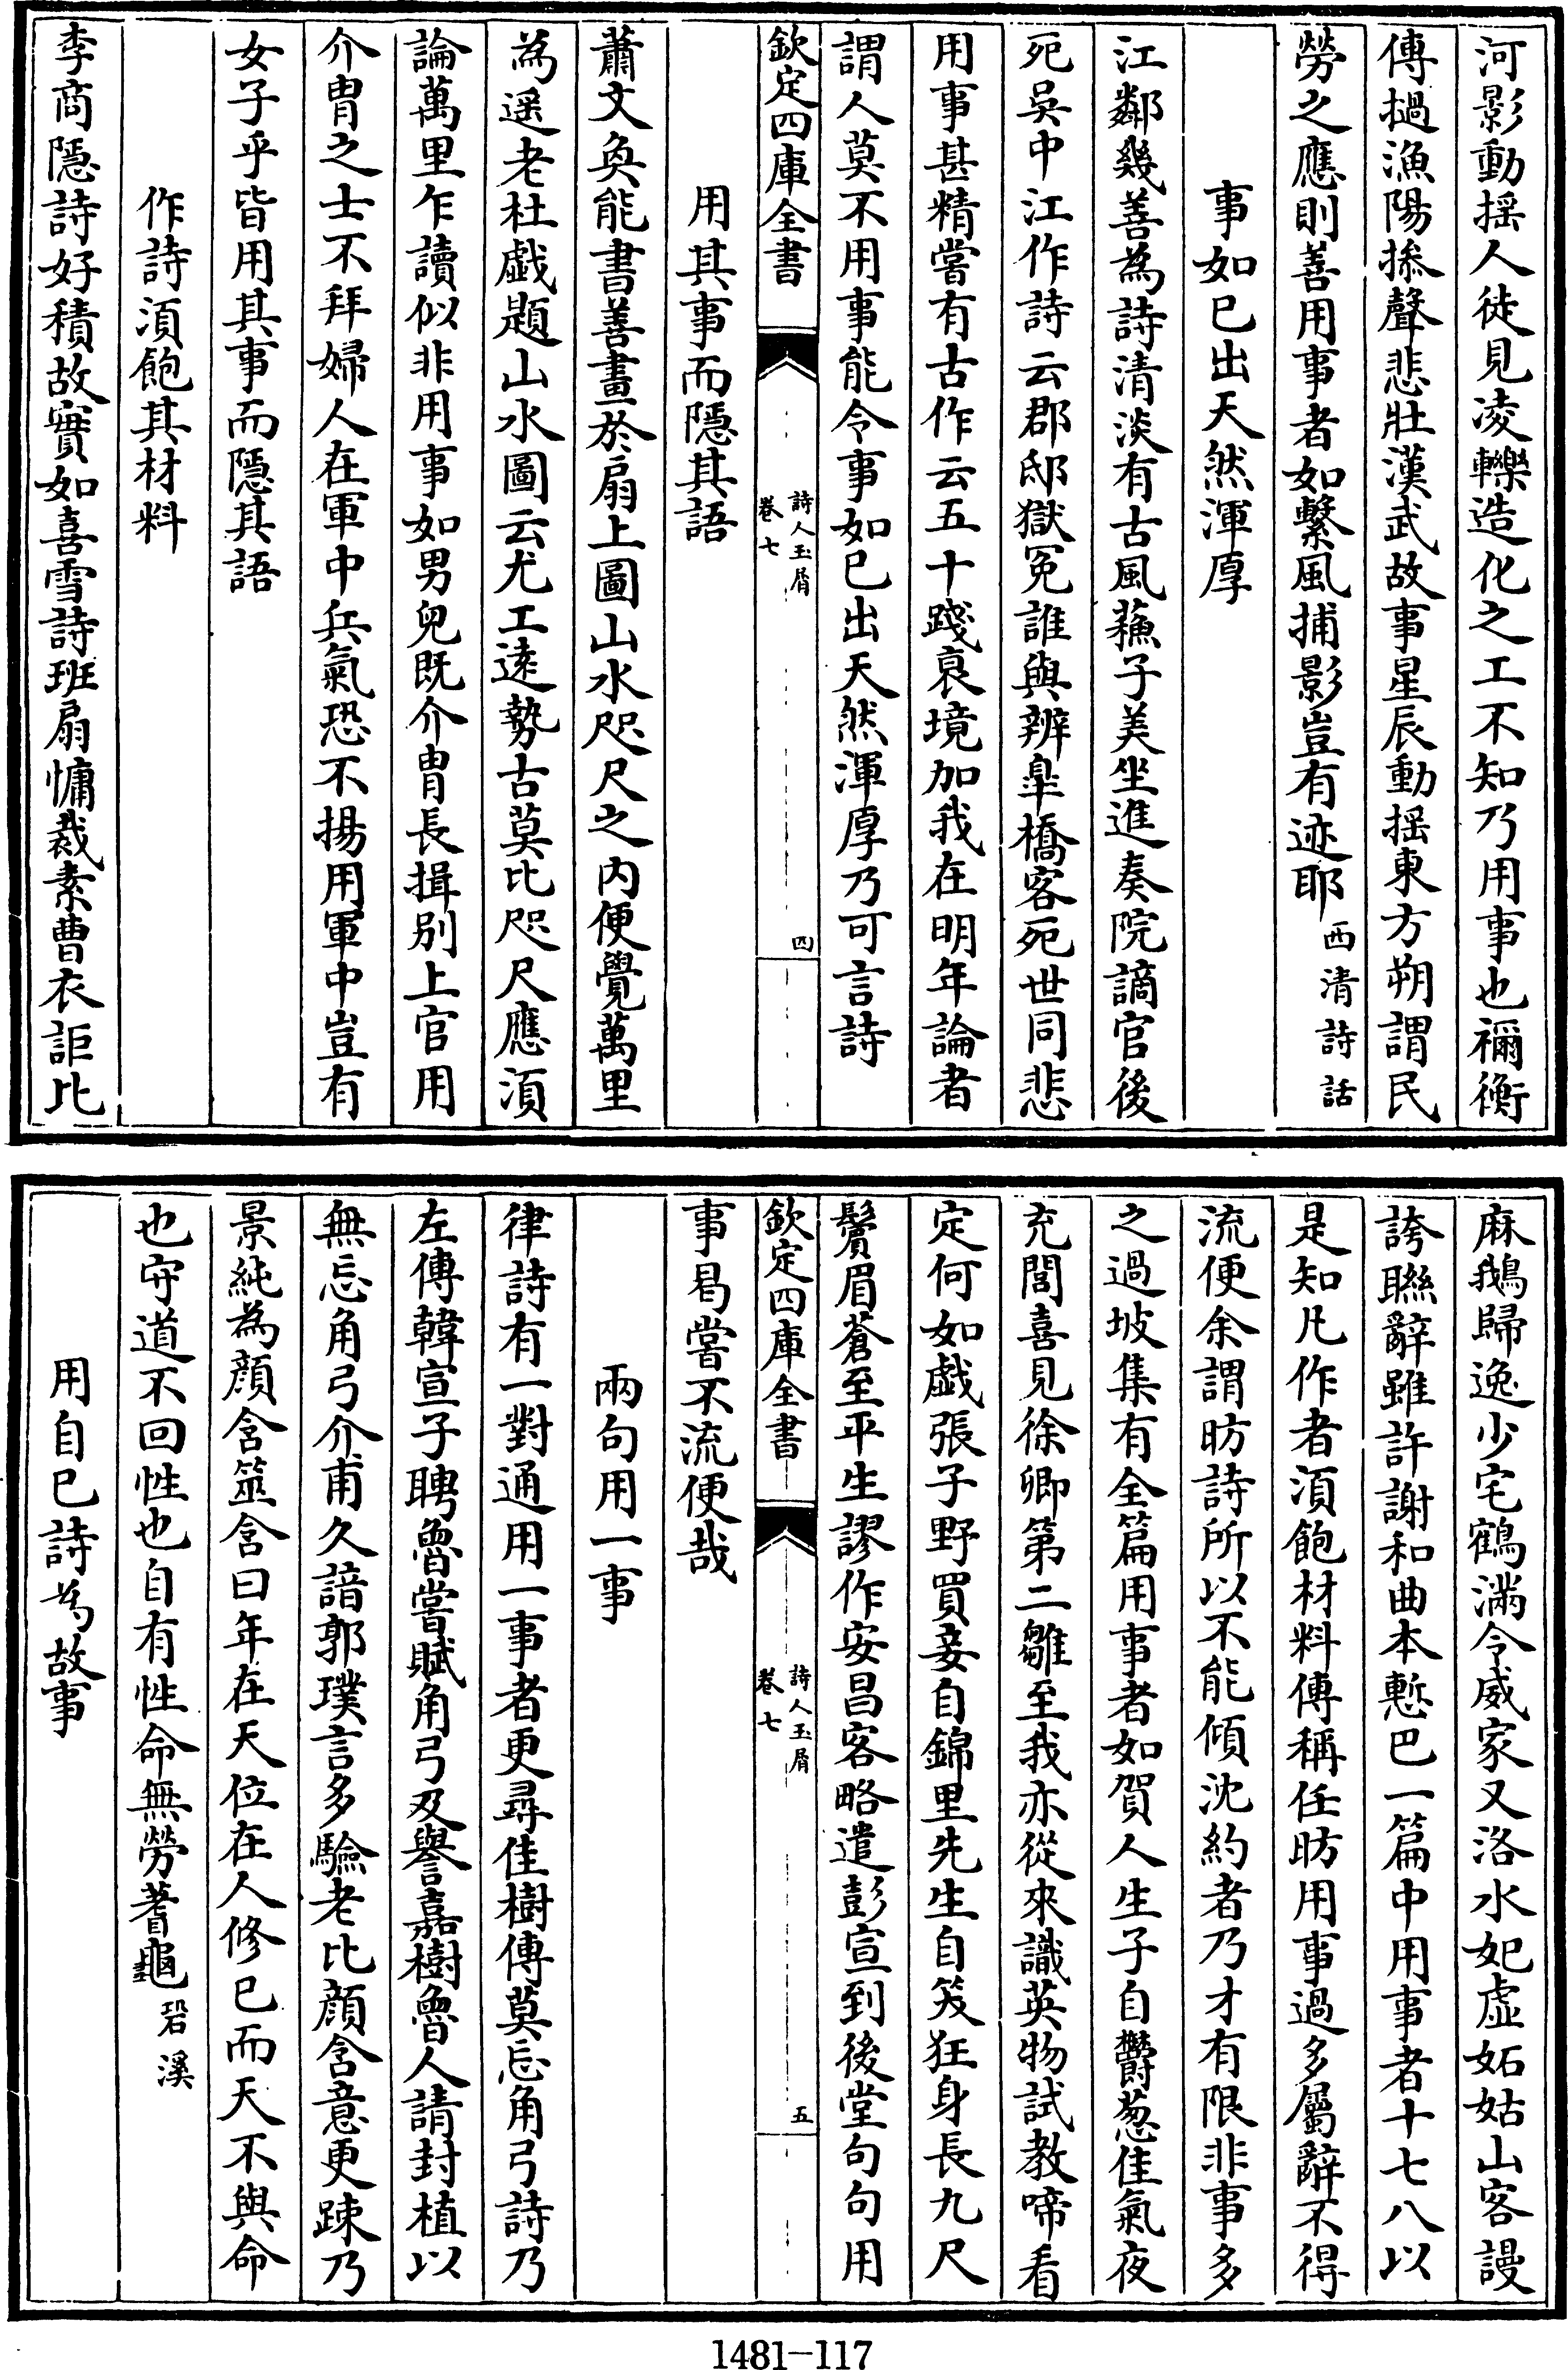 河影動揺人徒見凌轢造化之工不知乃用事也禰衡
傳撾漁陽摻聲悲壯漢武故事星辰動揺東方朔謂民
勞之應則善用事者如繫風捕影豈有迹耶西清詩話
事如已出天然渾厚
江鄰幾善為詩清淡有古風蘓子美坐進奏院謫官後
死吳中江作詩云郡邸獄寃誰與辨臯橋客死世同悲
用事甚精嘗有古作云五十踐衰境加我在明年論者
謂人莫不用事能令事如已出天然渾厚乃可言詩
欽定四庫全書
詩人玉屑
卷七
四
用其事而隱其語
蕭文奐能書善畫於扇上圖山水咫尺之内便覺萬里
為遥老杜戯題山水圖云尤工逺勢古莫比咫尺應湏
論萬里乍讀似非用事如男兒既介胄長揖别上官用
介胄之士不拜婦人在軍中兵氣恐不揚用軍中豈有
女子乎皆用其事而隱其語
作詩湏飽其材料
李商隱詩好積故實如喜雪詩班扇慵裁素曹衣詎比
麻鵝歸逸少宅鶴滿令威家又洛水妃虛妬姑山客謾
誇聯辭雖許謝和曲本慙巴一篇中用事者十七八以
是知凡作者湏飽材料傳稱任昉用事過多屬辭不得
流便余謂昉詩所以不能傾沈約者乃才有限非事多
之過坡集有全篇用事者如賀人生子自鬱葱佳氣夜
充閭喜見徐卿第二雛至我亦從來識英物試教啼看
定何如戯張子野買妾自錦里先生自笑狂身長九尺
鬢眉蒼至平生謬作安昌客略遣彭宣到後堂句句用
欽定四庫全書
詩人玉屑
卷七
五
事曷嘗不流便哉
兩句用一事
律詩有一對通用一事者更尋佳樹傳莫忘角弓詩乃
左傳韓宣子聘魯嘗賦角弓及譽嘉樹魯人請封植以
無忘角弓介甫久諳郭璞言多驗老比顔含意更踈乃
景純為顔含筮含曰年在天位在人修已而天不與命
也守道不回性也自有性命無勞蓍龜䂬溪
用自已詩為故事
1481-117